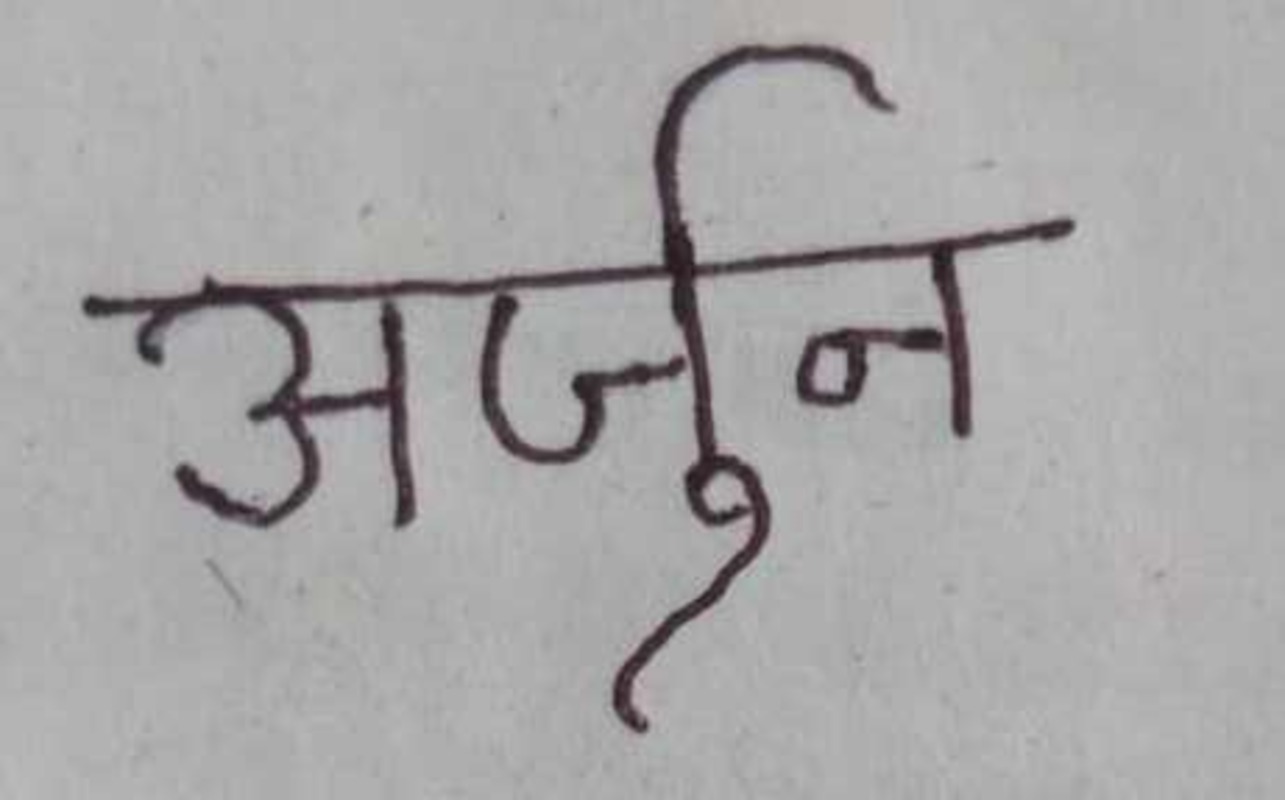 अर्जुन